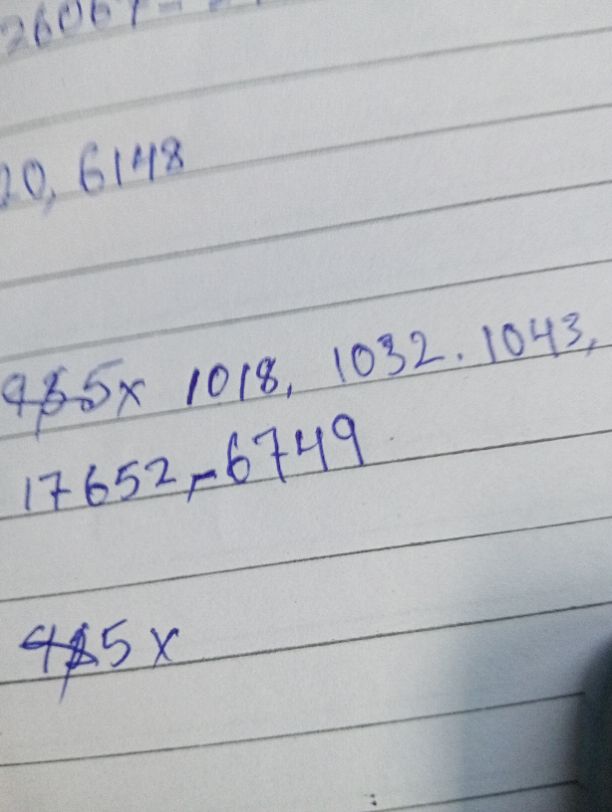 26067-
20, 6148
485x 1018, 1032. 1043,
17652,-6749
485x